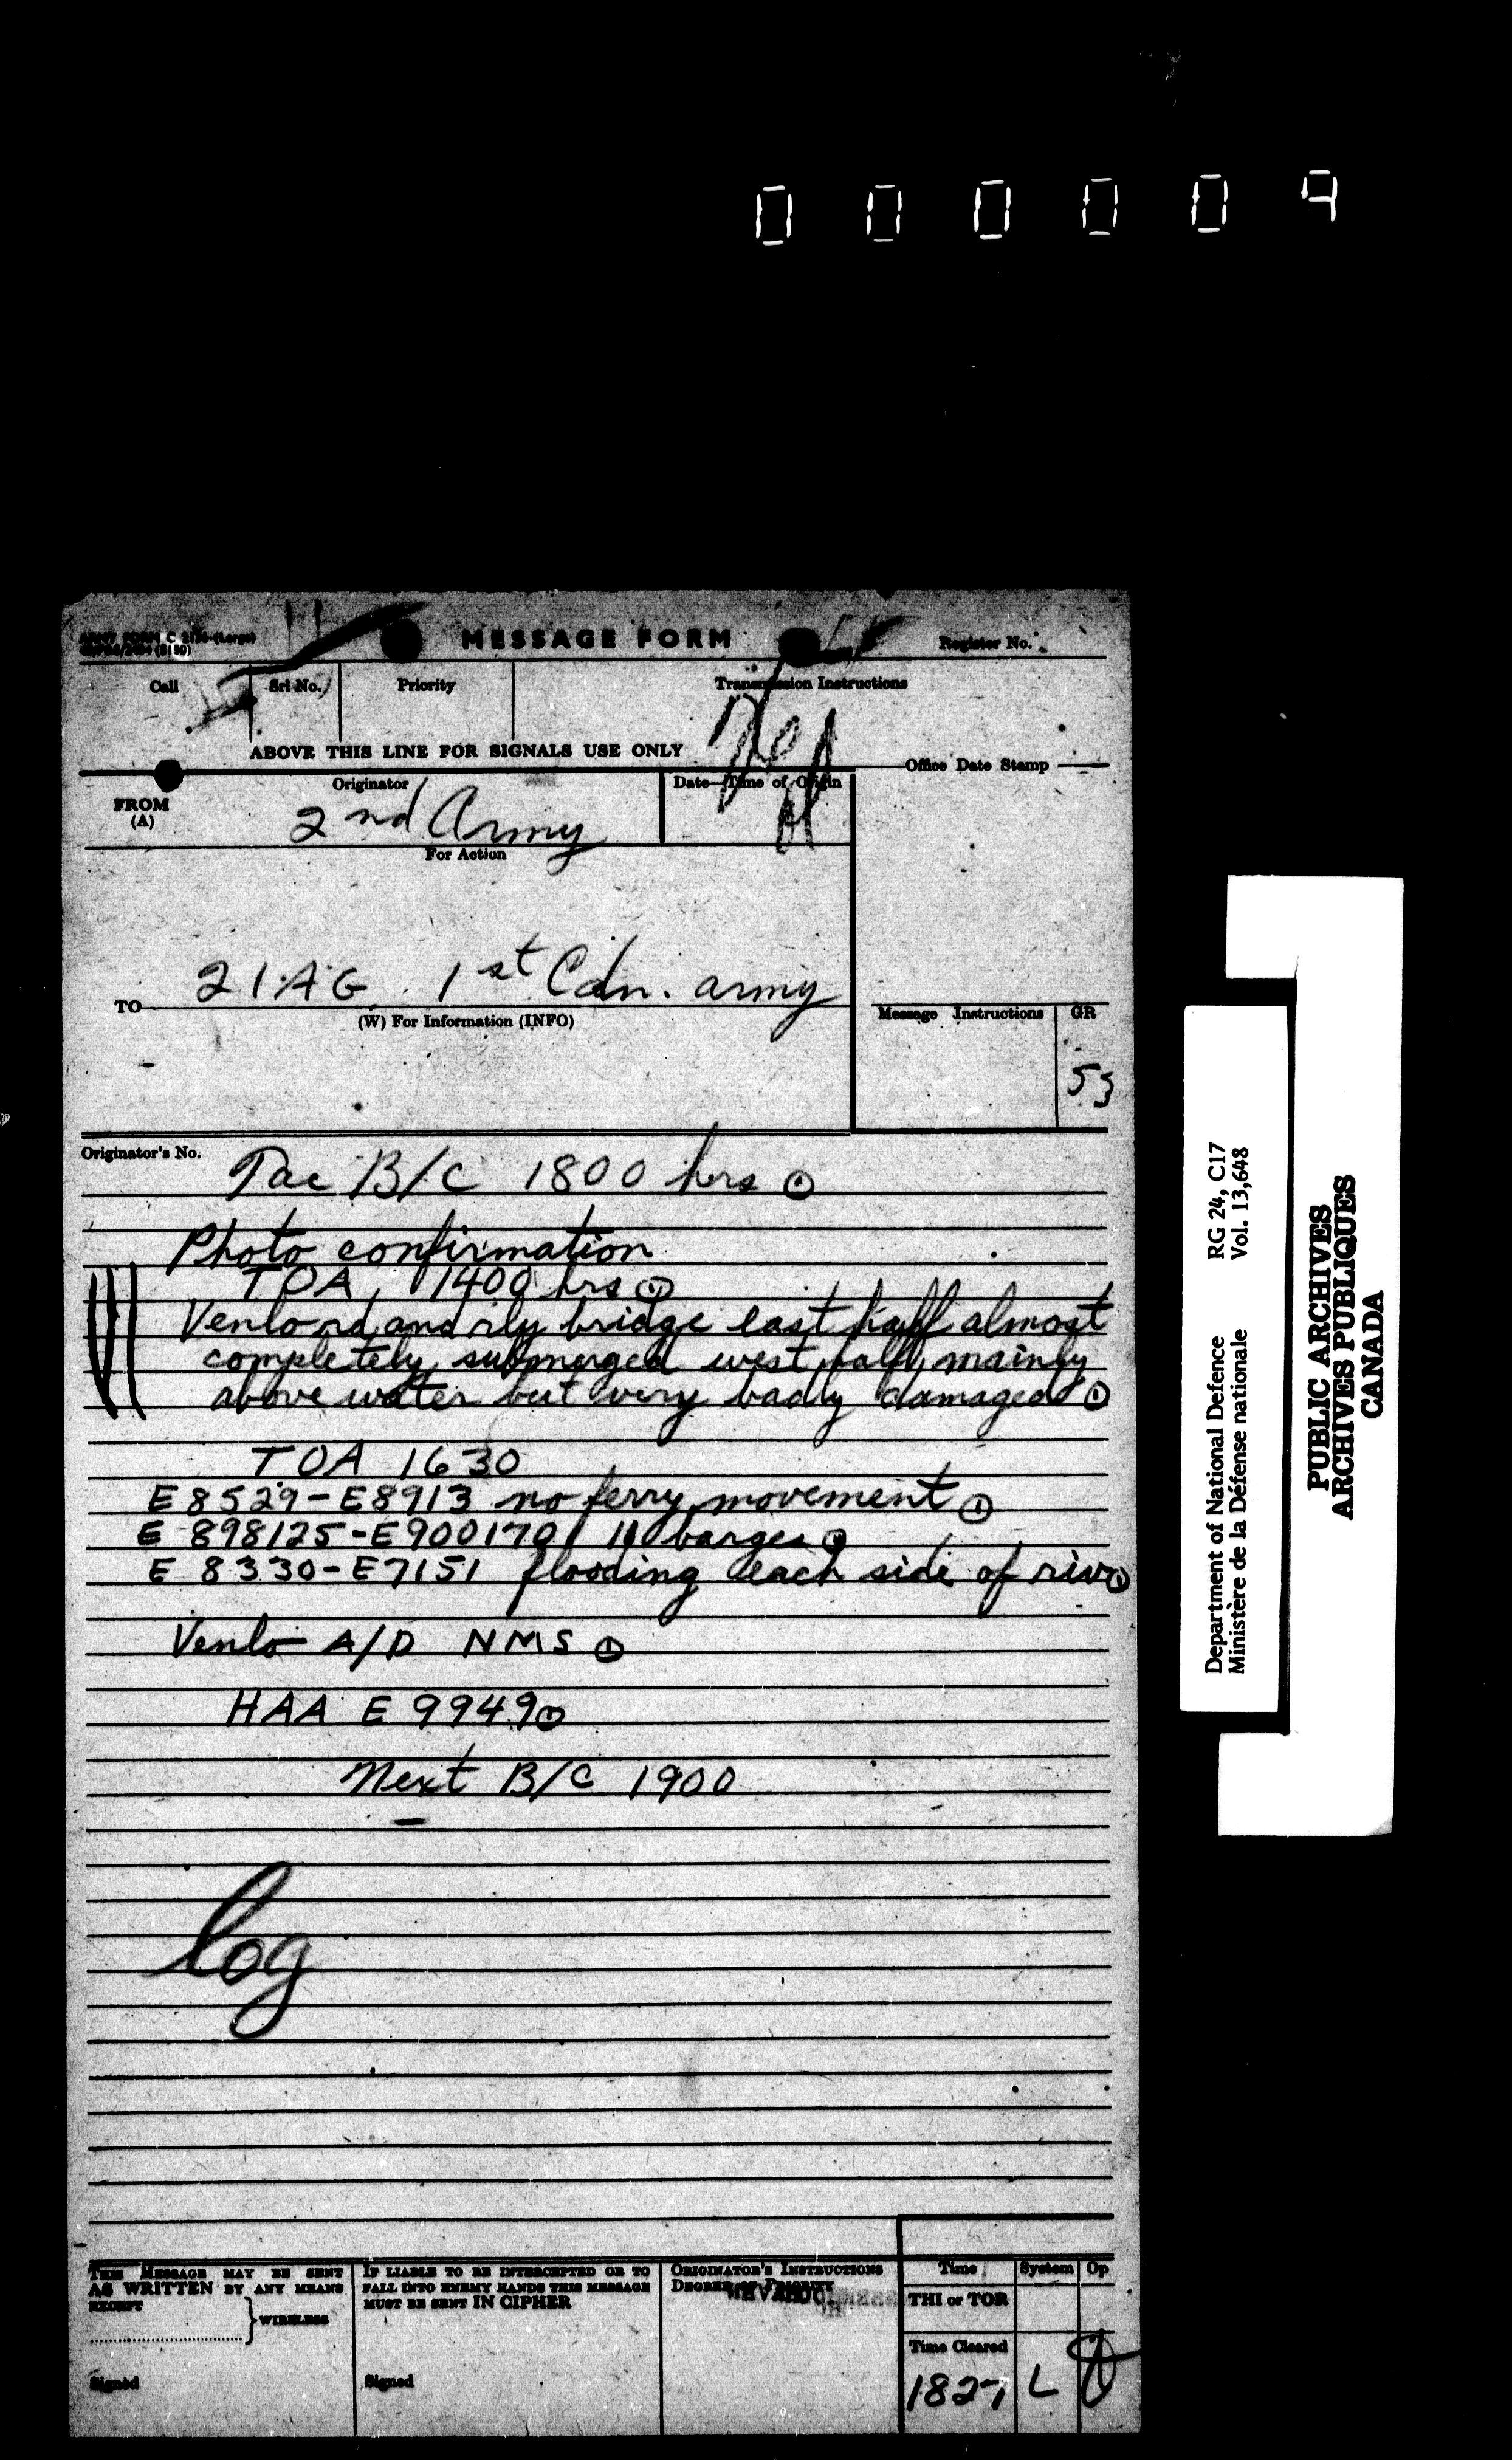 000009
ARMY FORM C 2136 (Large)
MESSAGE FORM
Register No.
Call
Srl No.
Priority
Transmission Instructions
ABOVE THIS LINE FOR SIGNALS USE ONLY
Office Date Stamp
FROM
(A)
Originator
Date—Time of Origin
2nd Army
For Action
21 AG 1st Cdn. army
TO
(W) For Information (INFO)
Message Instructions
GR
53
Originator's No.
Tac B/C 1800 hrs
Photo confirmation
TOA 1400 hrs
Venlo rd and rly bridge east half almost
completely submerged west half mainly
above water but very badly damaged
TOA 1630
E8529-E8913 no ferry movement
E 898125-E900170 10 barges
E 8330-E7151 flooding each side of riv
Venlo A/D NMS
HAA E 9949
Next B/C 1900
log
THIS MESSAGE MAY BE SENT
AS WRITTEN BY ANY MEANS
EXCEPT
WIRELESS
Signed
IF LIABLE TO BE INTERCEPTED OR TO
FALL INTO ENEMY HANDS THIS MESSAGE
MUST BE SENT IN CIPHER
Signed
ORIGINATOR'S INSTRUCTIONS
DEGREE OF PRIORITY
Time
System
Op
THI or TOR
Time Cleared
1827
L
Department of National Defence
Ministère de la Défense nationale
RG 24, C17
Vol. 13,648
PUBLIC ARCHIVES
ARCHIVES PUBLIQUES
CANADA